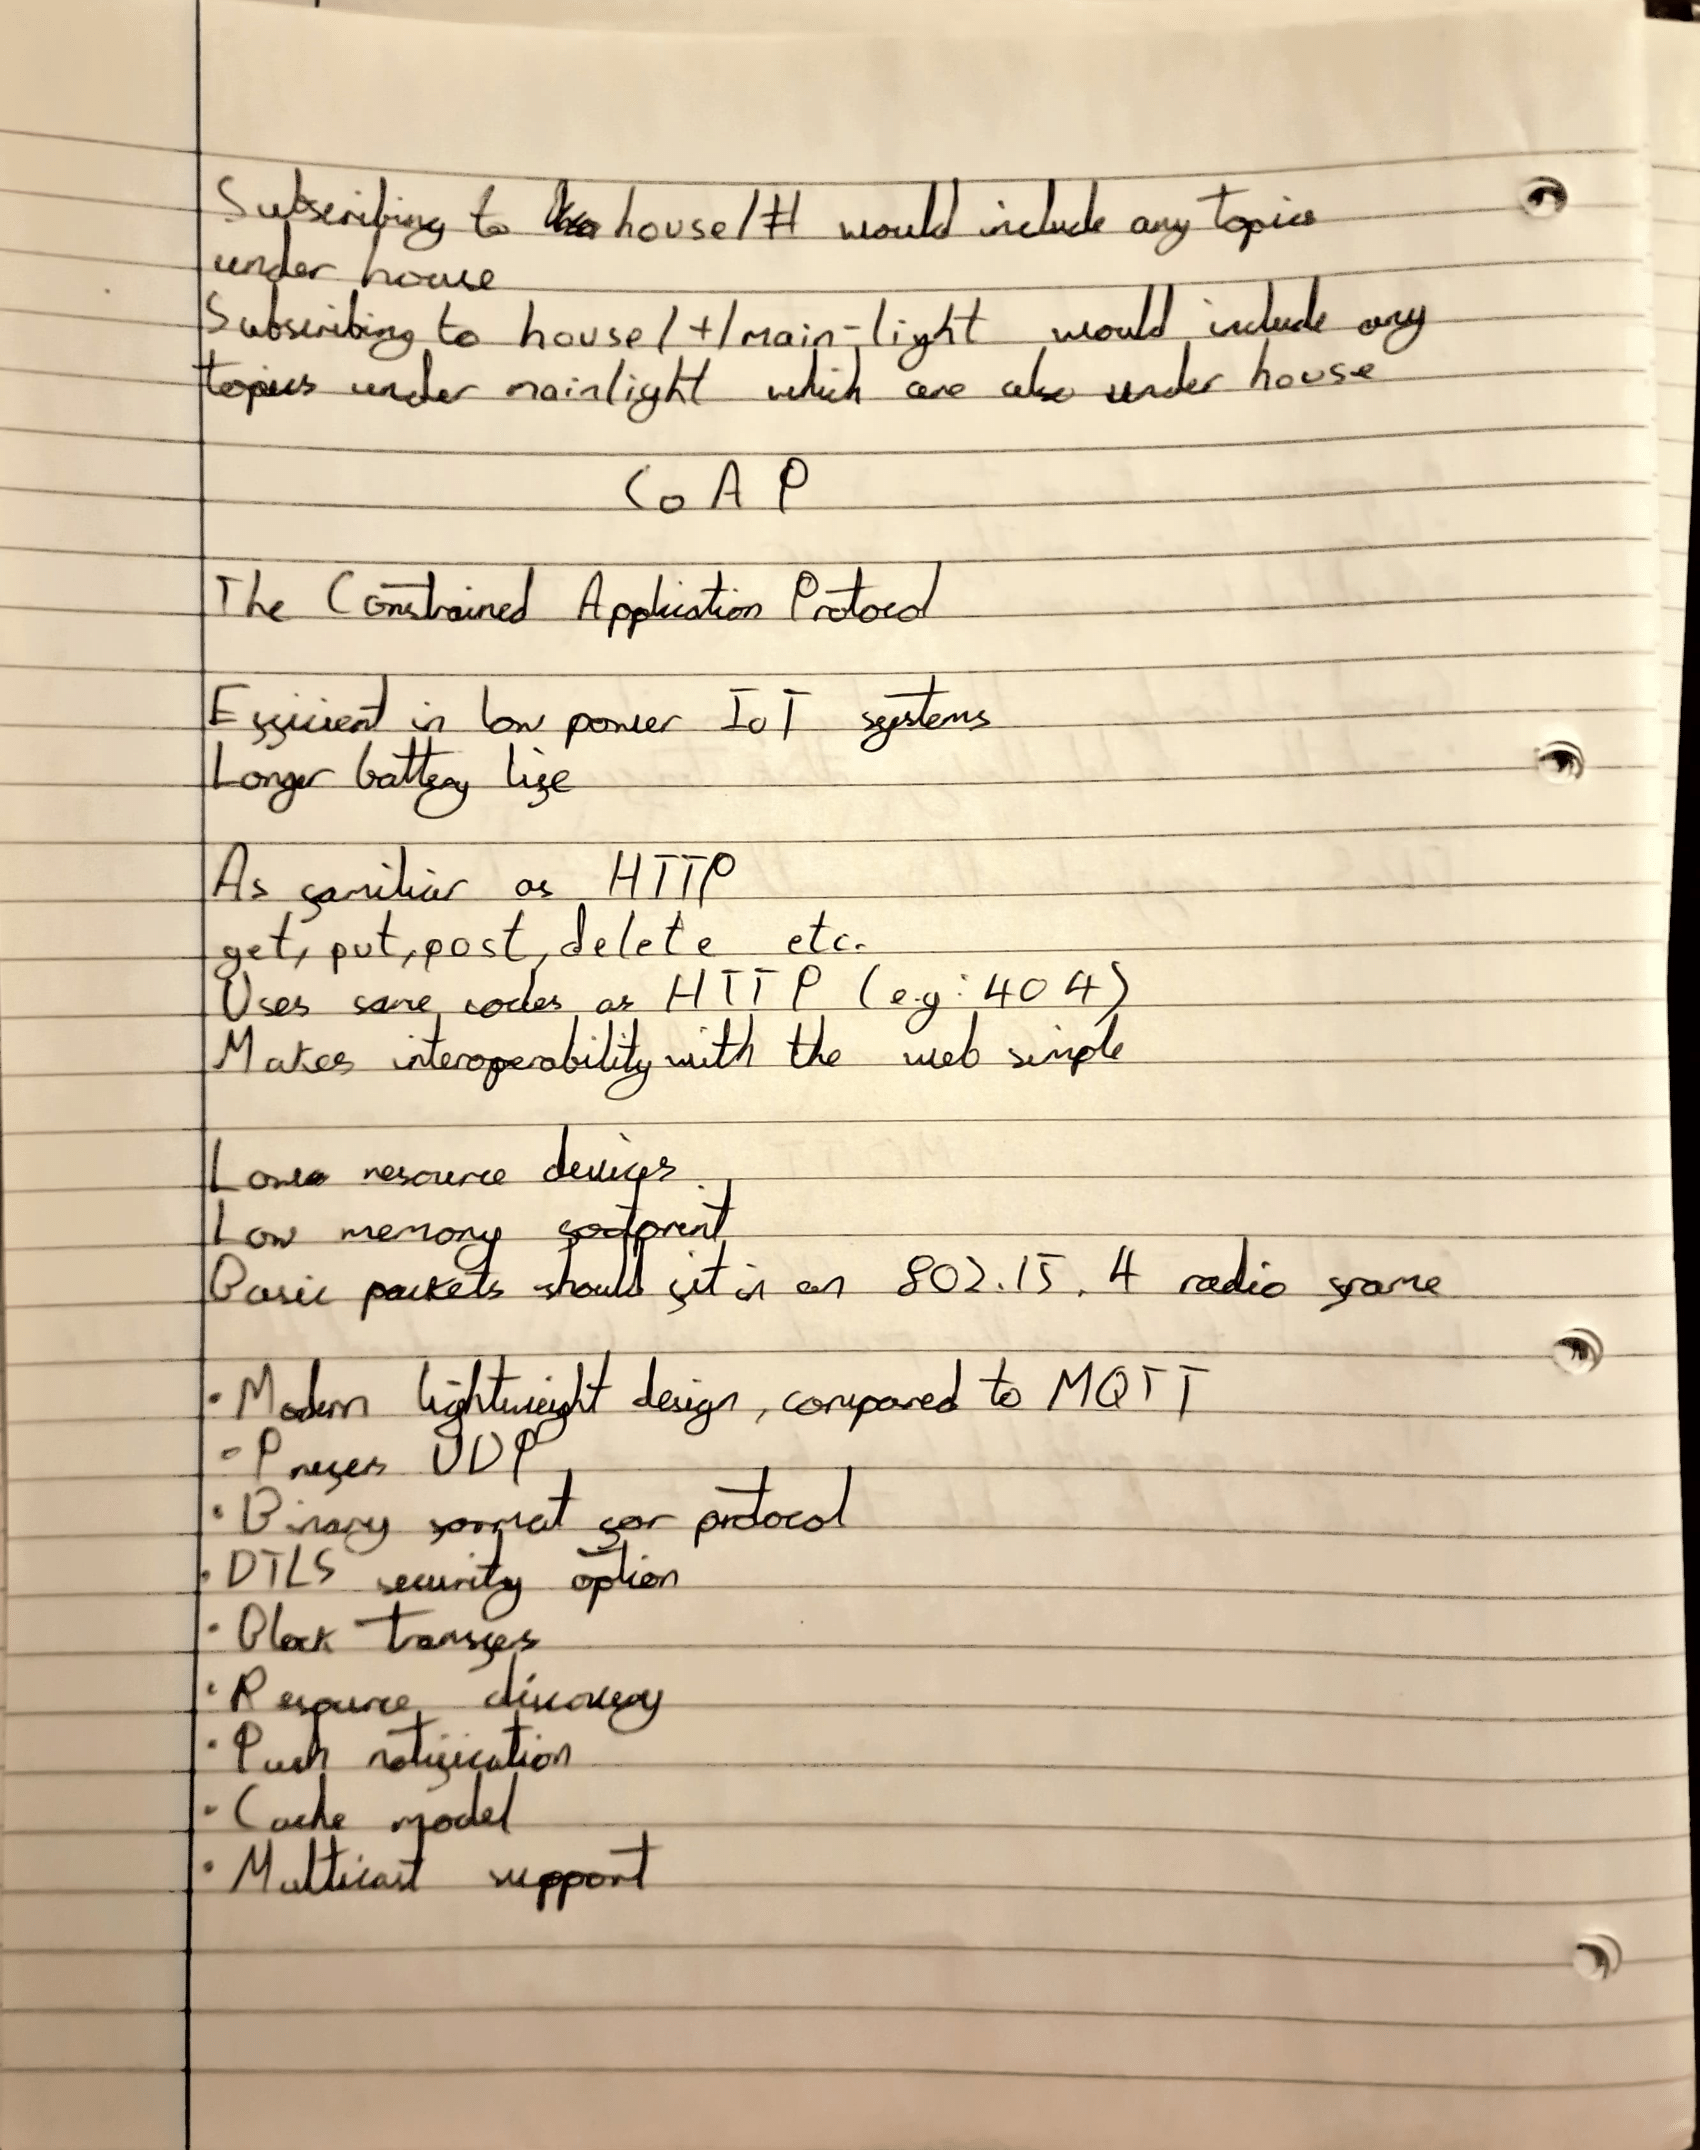 Subscribing to house/# would include any topics
under house
Subscribing to house/+/main-light would include any
topics under mainlight which are also under house
CoAP
The Constrained Application Protocol
Efficient in low power IoT systems
Longer battery life
As familiar as HTTP
get, put, post, delete etc.
Uses same codes as HTTP (e.g: 404)
Makes interoperability with the web simple
Low resource devices
Low memory footprint
Basic packets should fit in an 802.15.4 radio frame
· Modern lightweight design, compared to MQTT
- Prefers UDP
· Binary format for protocol
· DTLS security option
· Block transfers
· Resource discovery
· Push notification
· Cache model
· Multicast support